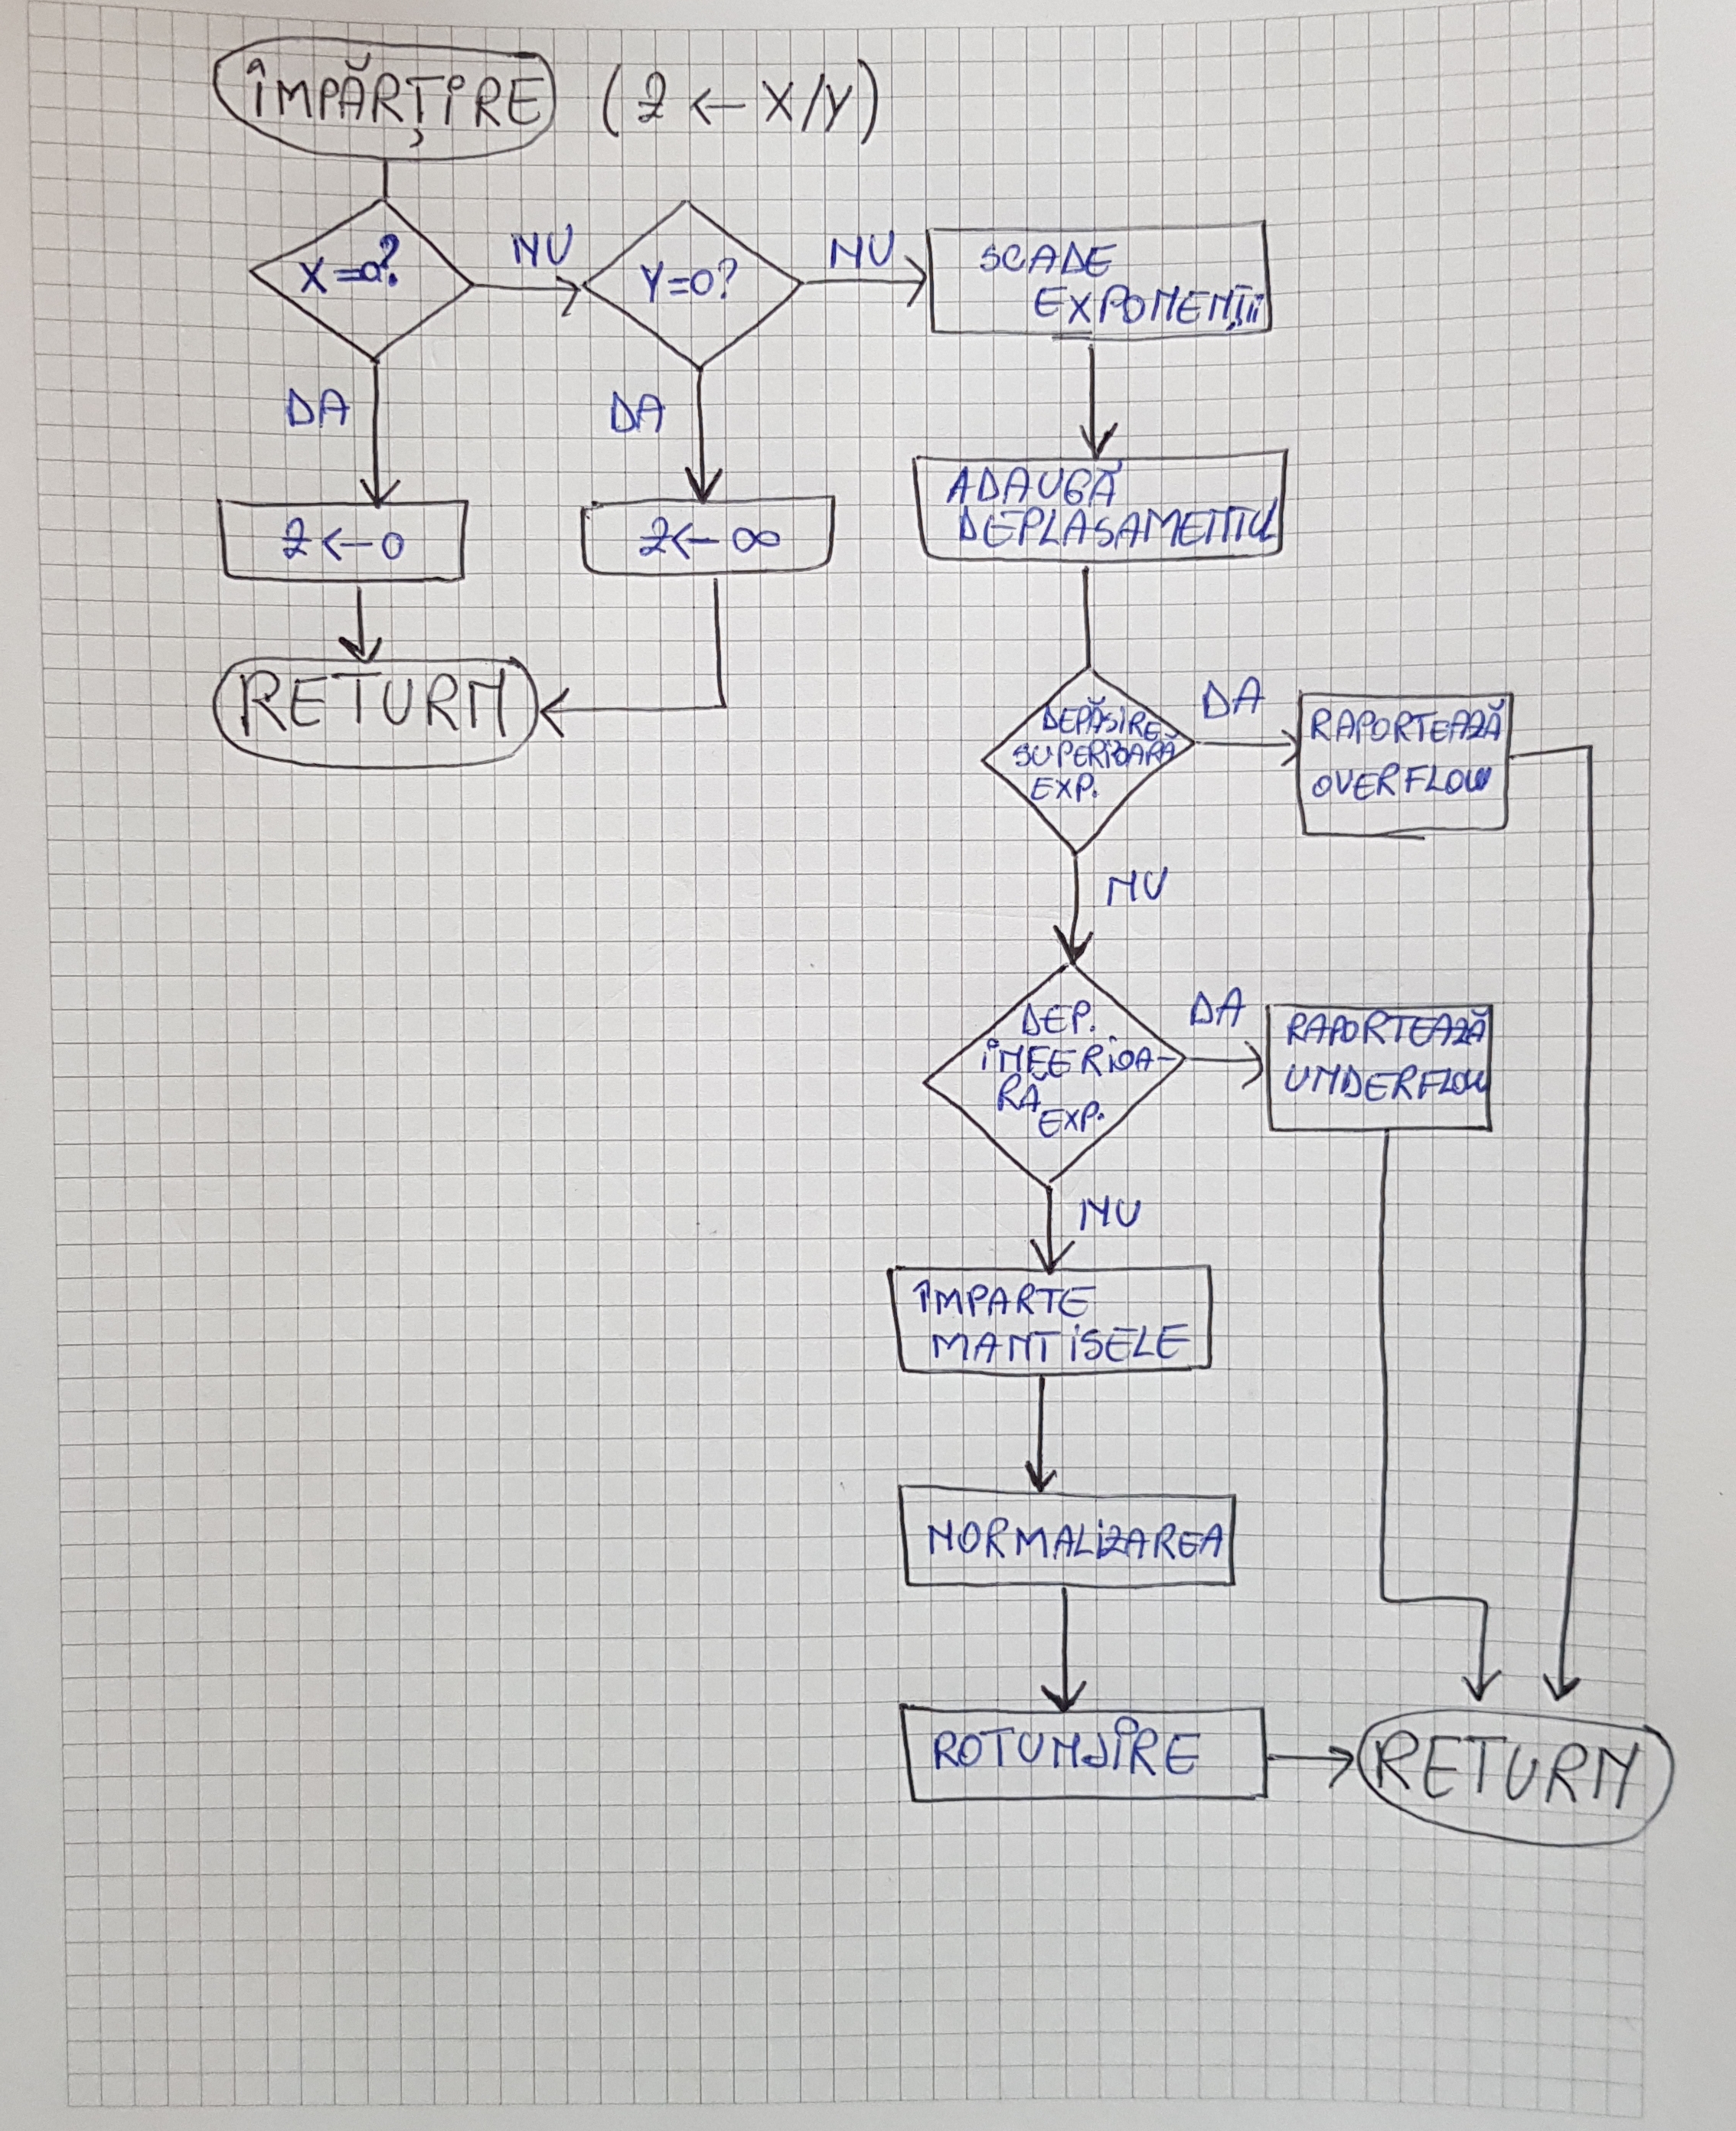 ÎMPĂRȚIRE (Z ← X/Y)
X=0?
NU
Y=0?
NU
SCADE
EXPONENȚII
DA
DA
Z ← 0
Z ← ∞
ADAUGĂ
DEPLASAMENTUL
RETURN
DEPĂSIRE
SUPERIOARĂ
EXP.
DA
RAPORTEAZĂ
OVERFLOW
NU
DEP.
INFERIOA-
RĂ
EXP.
DA
RAPORTEAZĂ
UNDERFLOW
NU
ÎMPARTE
MANTISELE
NORMALIZAREA
ROTUNJIRE
RETURN